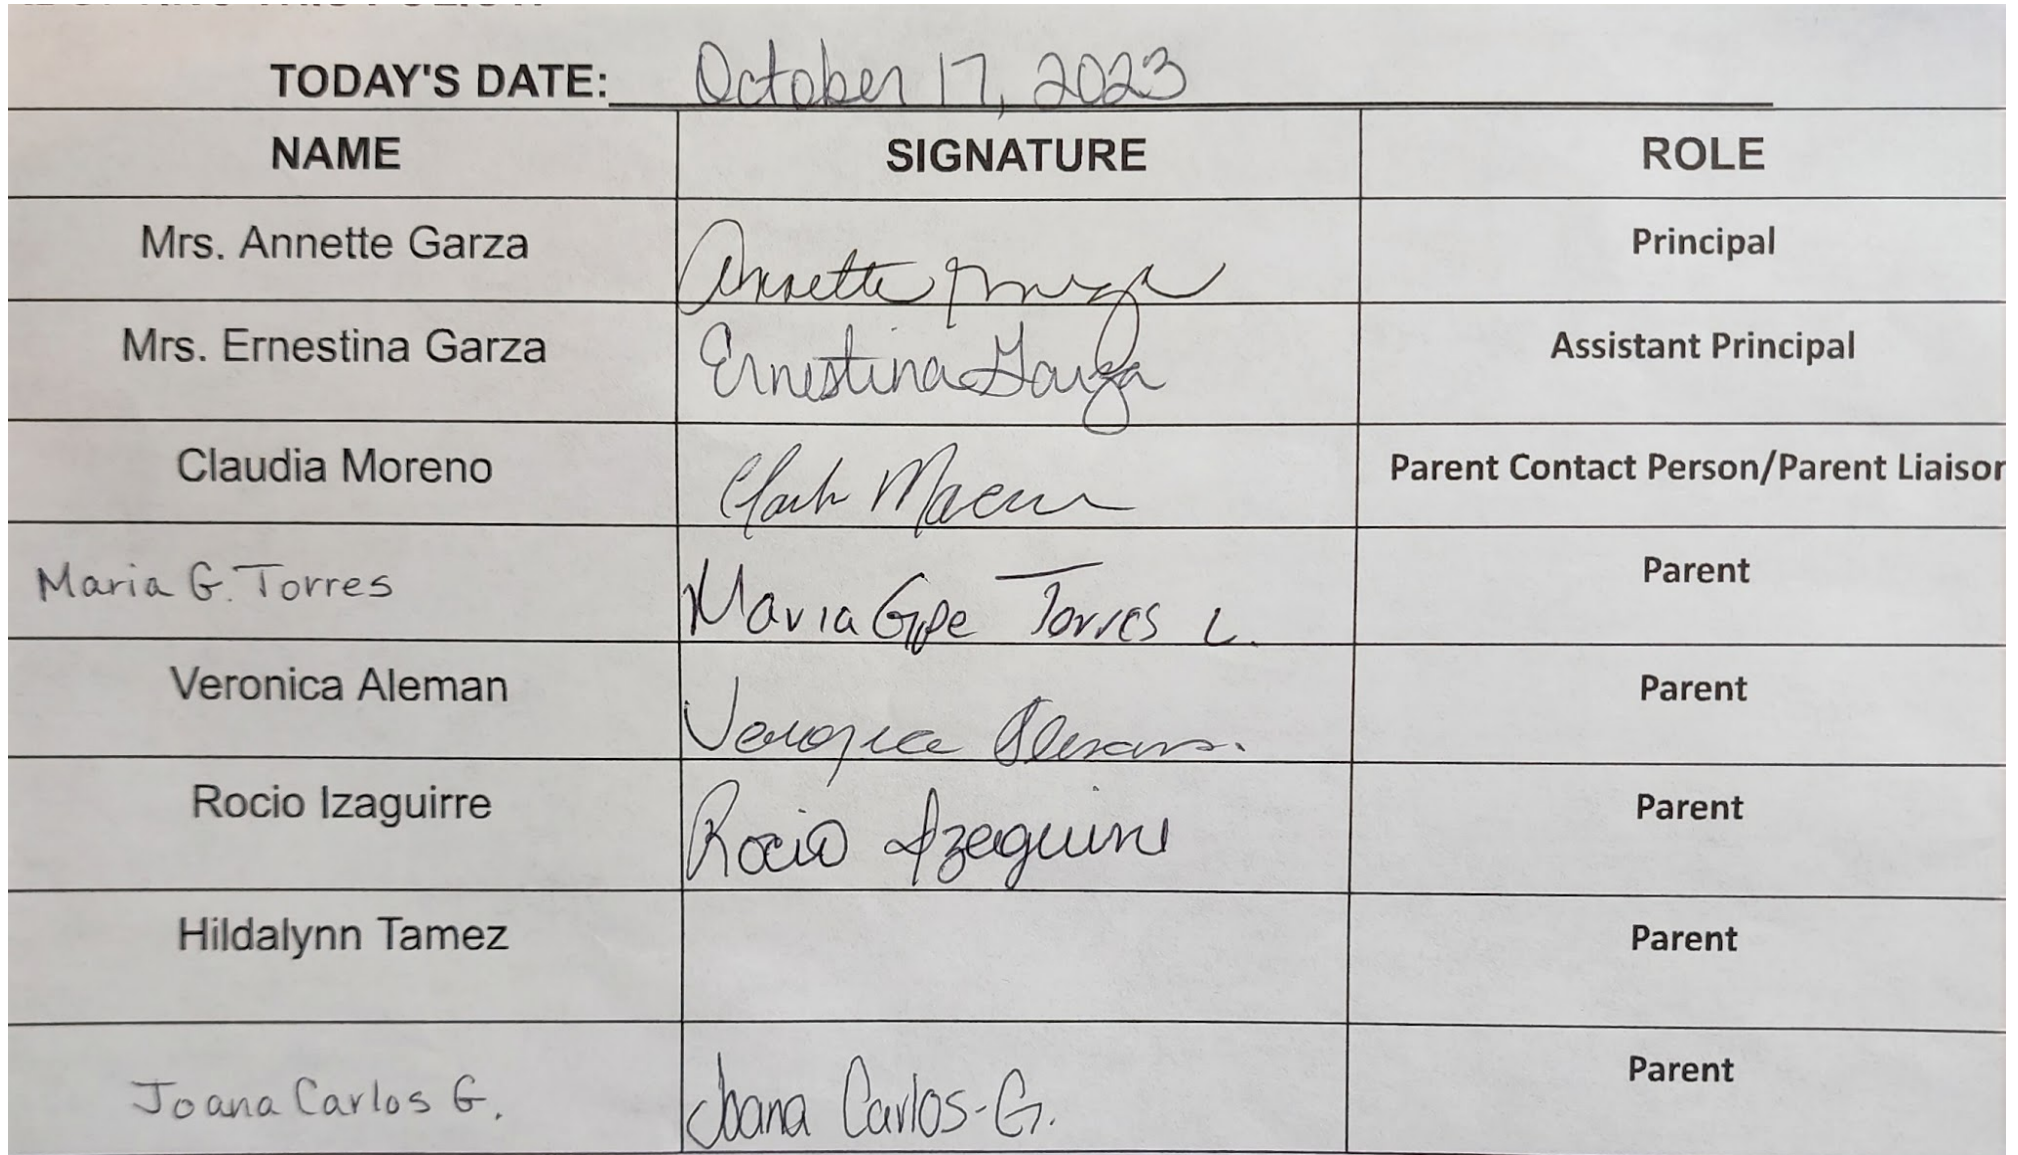 TODAY'S DATE: October 17, 2023
NAME SIGNATURE ROLE
Mrs. Annette Garza Annette Garza Principal
Mrs. Ernestina Garza Ernestina Garza Assistant Principal
Claudia Moreno Parent Contact Person/Parent Liaison
Maria G. Torres Maria Gpe Torres L. Parent
Veronica Aleman Veronica Aleman. Parent
Rocio Izaguirre Rocio Izaguirre Parent
Hildalynn Tamez Parent
Joana Carlos G. Joana Carlos-G. Parent